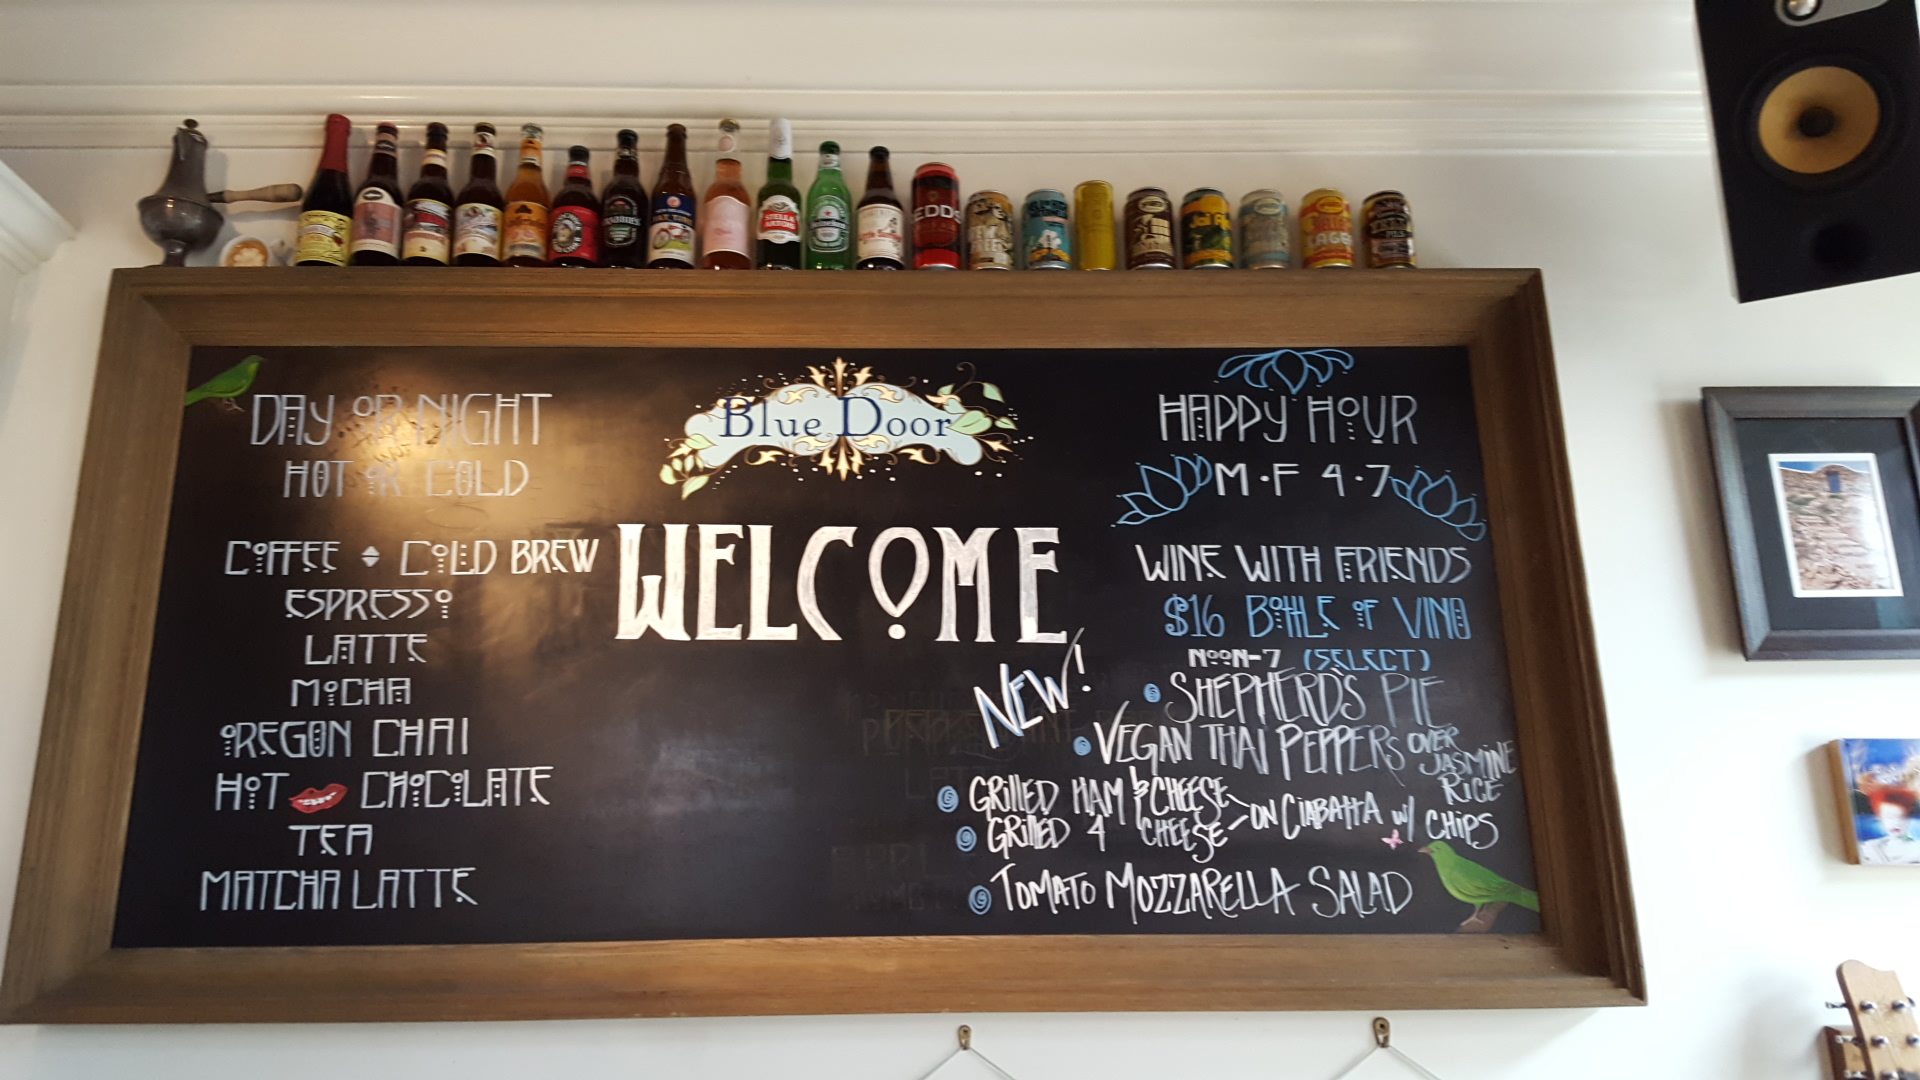 DAY OR NIGHT
HOT OR COLD
COFFEE COLD BREW
ESPRESSO
LATTE
MOCHA
OREGON CHAI
HOT CHOCOLATE
TEA
MATCHA LATTE
Blue Door
WELCOME
HAPPY HOUR
M·F 4·7
WINE WITH FRIENDS
$16 BOTTLE OF VINO
NOON-7 (SELECT)
NEW!
SHEPHERD'S PIE
VEGAN THAI PEPPERS OVER JASMINE RICE
GRILLED HAM & CHEESE
GRILLED 4 CHEESE
ON CIABATTA W/ CHIPS
TOMATO MOZZARELLA SALAD
STELLA ARTOIS
Heineken
REDD'S
LAGER